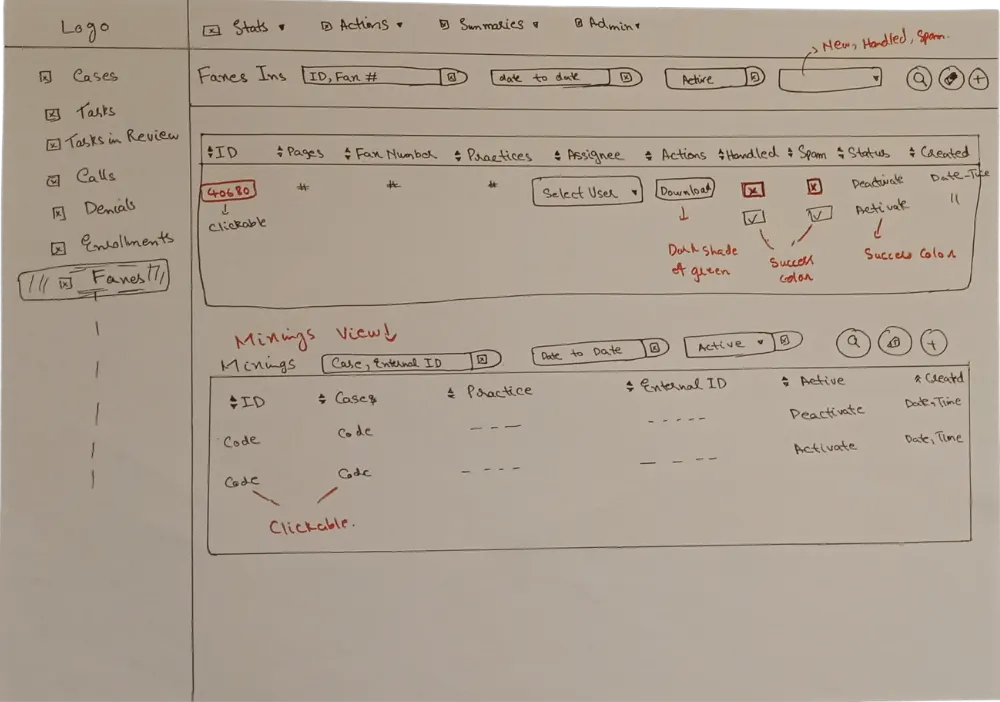 Logo
Stats Actions Summaries Admin
New, Handled, Spam.
Cases
Tasks
Tasks in Review
Calls
Denials
Enrollments
Faxes
Faxes Ins ID, Fax # date to date Active
ID Pages Fax Number Practices Assignee Actions Handled Spam Status Created
40680 # # # Select User Download Deactivate Date-Time
Clickable Activate "
Dark shade of green
Success Color
Success Color
Minings View
Minings Case, External ID Date to Date Active
ID Cases Practice External ID Active Creatd
Code Code - - - - - - - - Deactivate Date, Time
Code Code - - - - - - - - Activate Date, Time
Clickable.